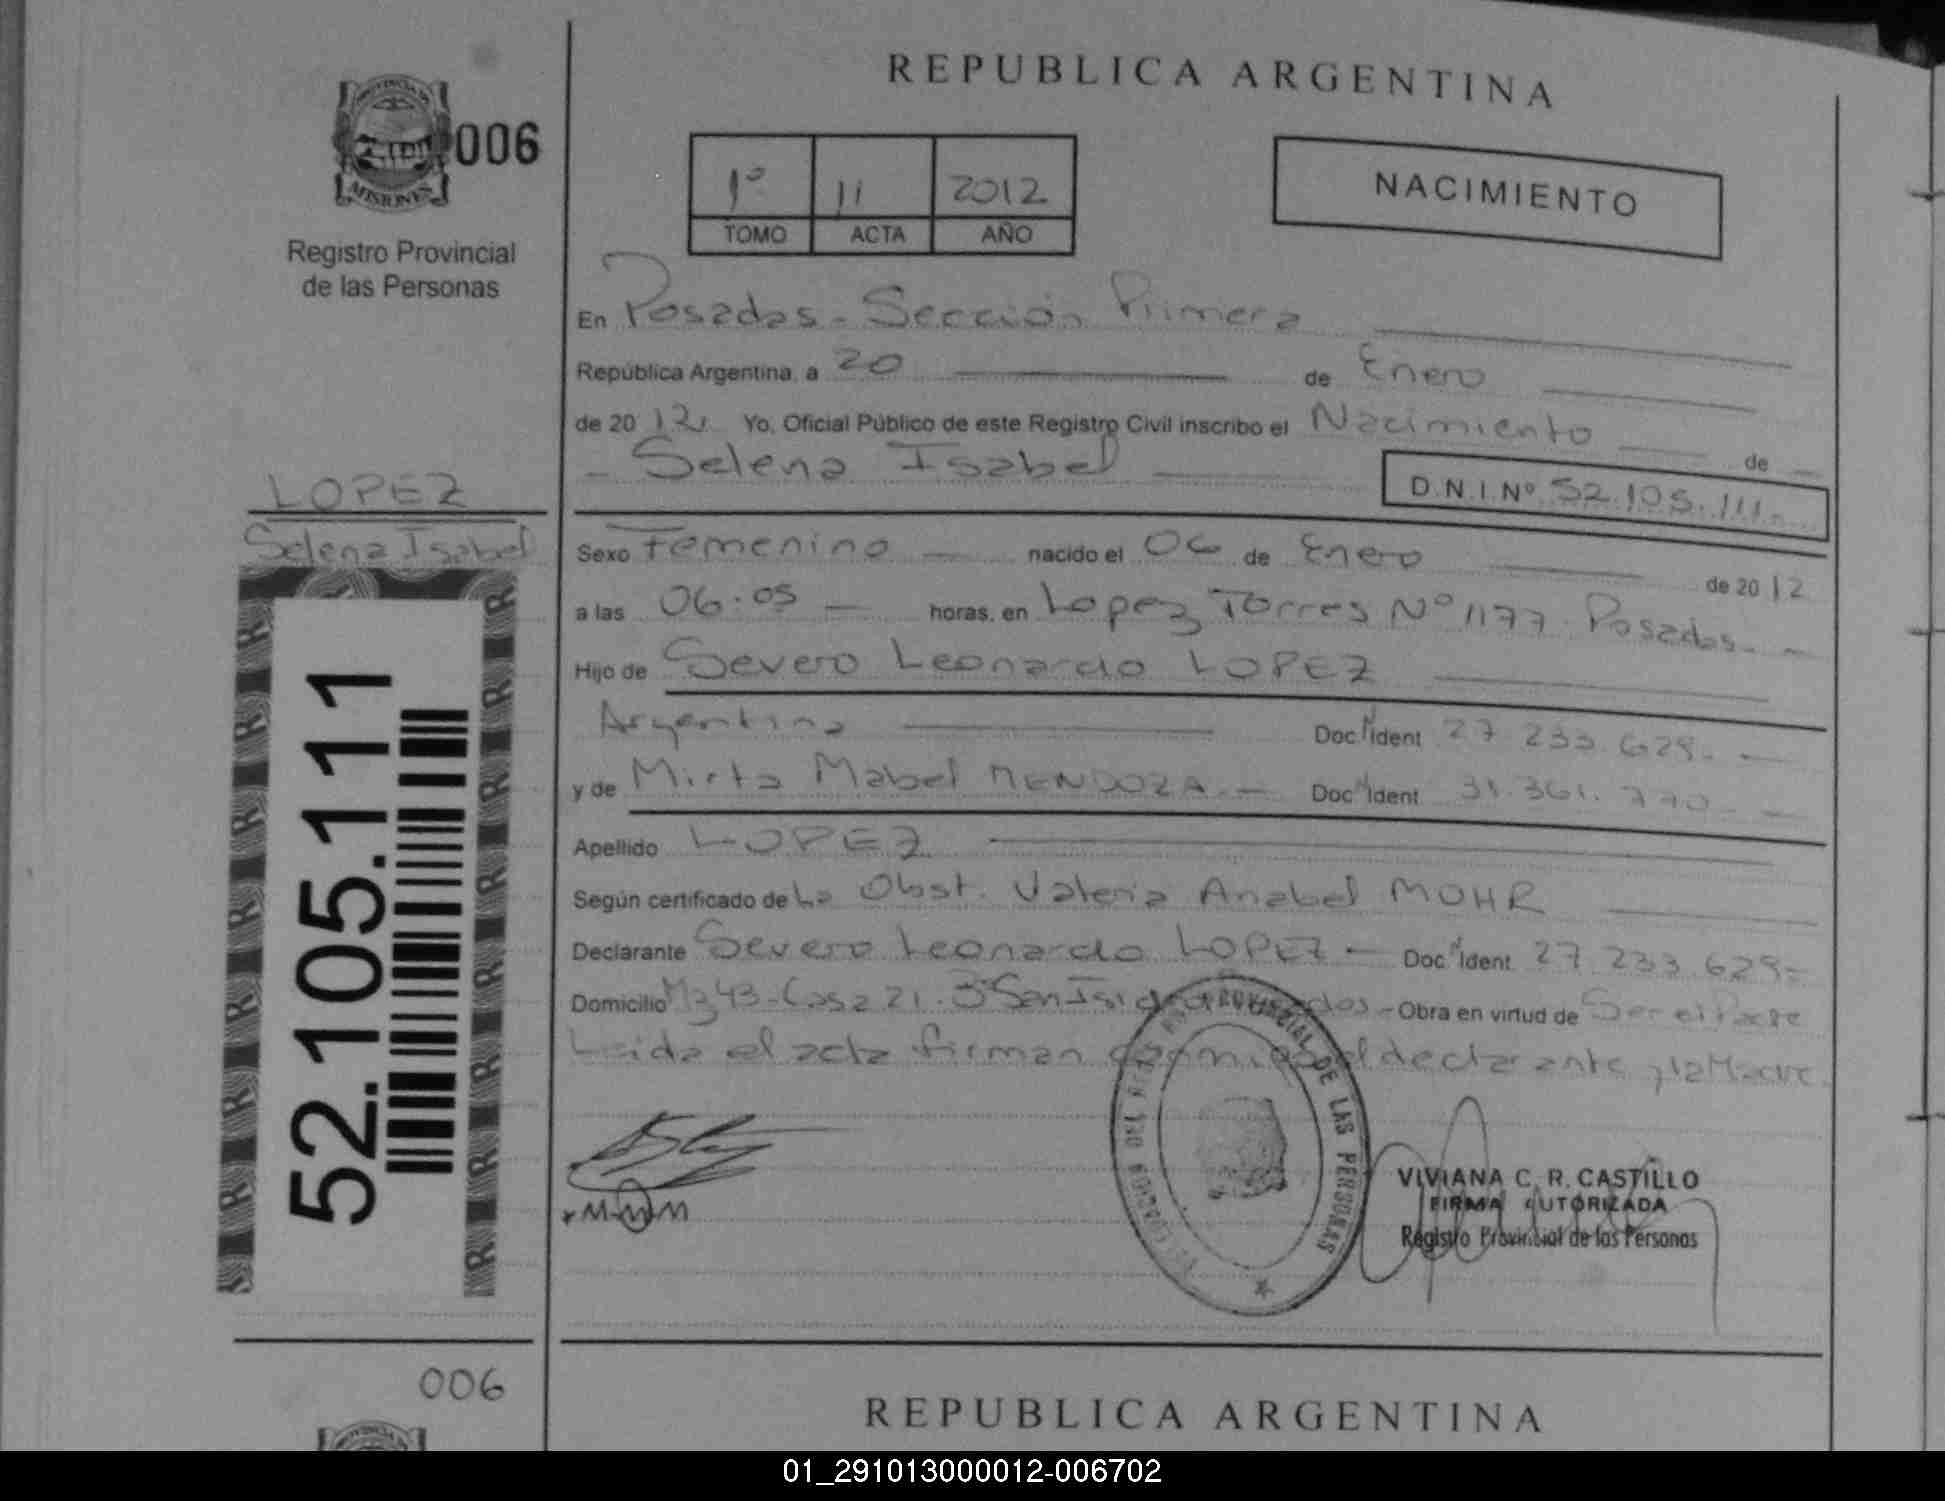 REPUBLICA ARGENTINA
PROVINCIA DE
MISIONES
006
1º 11 2012
TOMO ACTA AÑO
NACIMIENTO
Registro Provincial
de las Personas
En Posadas - Sección Primera
República Argentina, a 20 de Enero
de 2012 Yo, Oficial Público de este Registro Civil inscribo el Nacimiento de
Selena Isabel
D.N.I.Nº 52.105.111
LOPEZ
Selena Isabel
Sexo Femenino nacido el 06 de Enero de 2012
a las 06:05 horas, en Lopez Torres Nº 1177 Posadas
Hijo de Severo Leonardo LOPEZ
Argentina Doc. Ident 27 233 629
y de Mirta Mabel MENDOZA Doc. Ident 31.361.770
Apellido LOPEZ
Según certificado de La Obst. Valeria Anabel MOHR
Declarante Severo Leonardo LOPEZ - Doc. Ident 27.233.629
Domicilio Mz 43 - Casa 21 - San Isidro - Obra en virtud de Ser el Padre
Leida el acta firman conmigo el declarante y la Madre.
52.105.111
PROVINCIAL DE LAS PERSONAS
MMM
VIVIANA C. R. CASTILLO
FIRMA AUTORIZADA
Registro Provincial de las Personas
006
REPUBLICA ARGENTINA
01_291013000012-006702